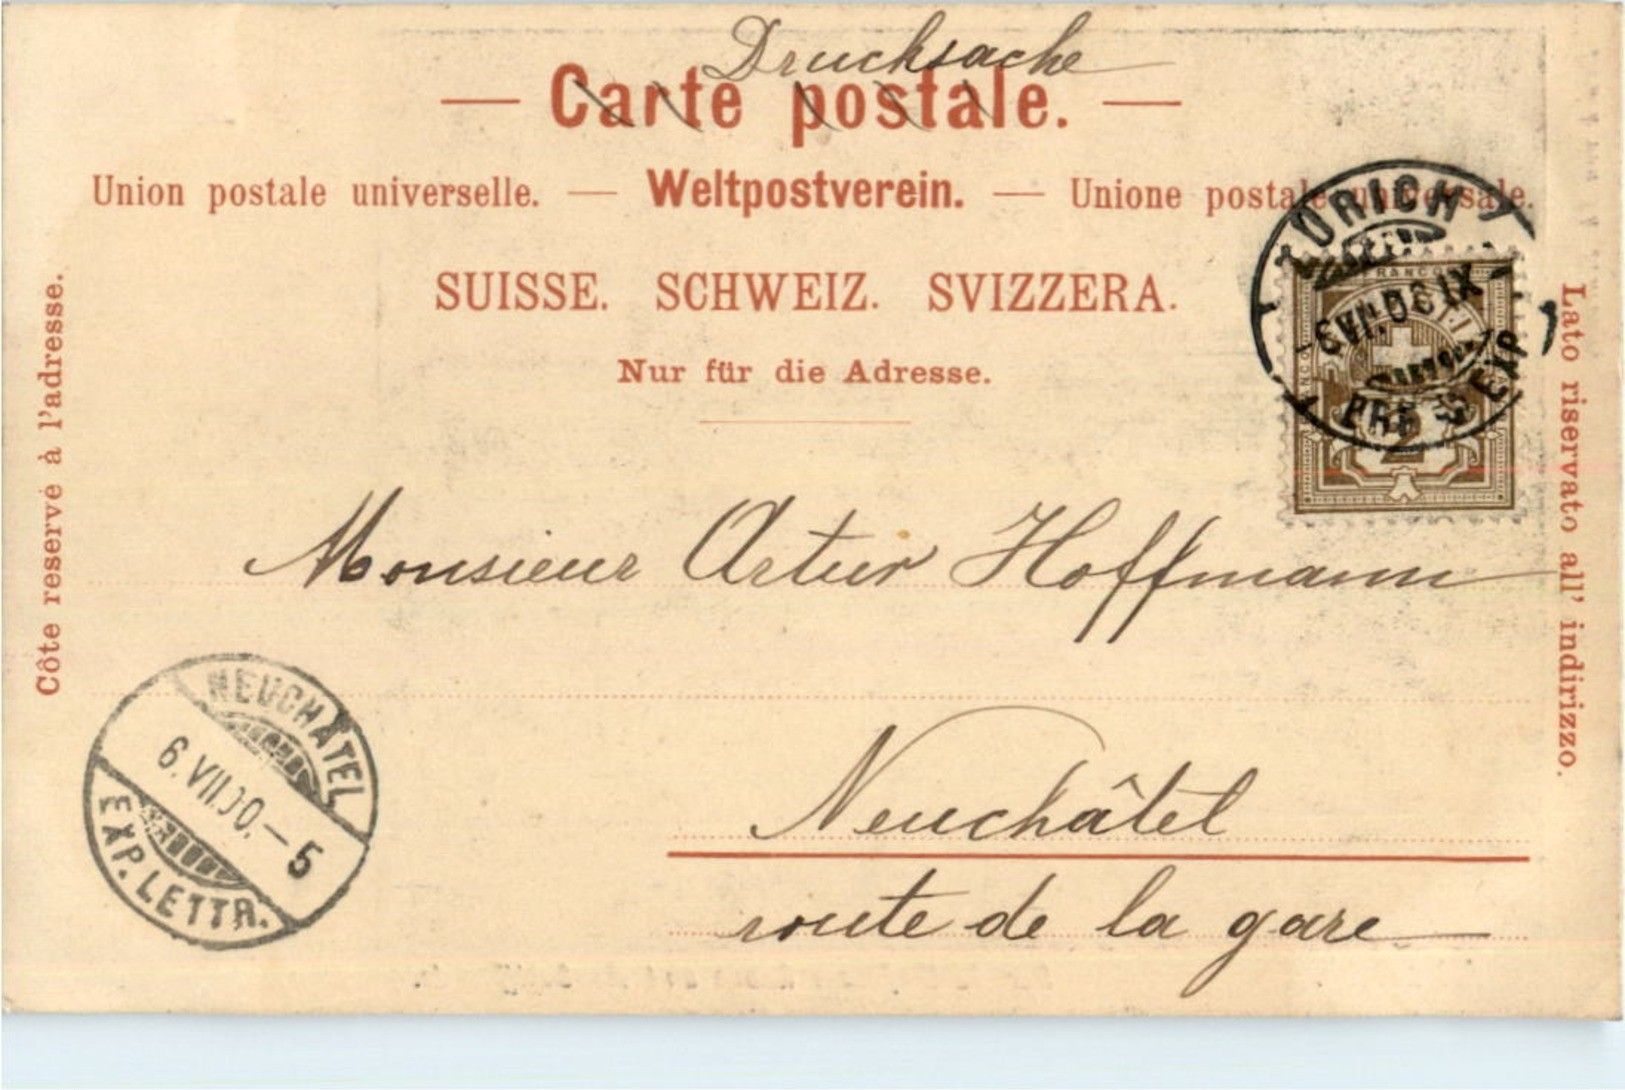 Drucksache
— Carte postale. —
Union postale universelle. — Weltpostverein. — Unione postale universale.
SUISSE. SCHWEIZ. SVIZZERA.
Nur für die Adresse.
Côte reservé à l'adresse.
Lato riservato all' indirizzo.
ZÜRICH
FRANCO
EXP.
2
Monsieur Artur Hoffmann
Neuchâtel
route de la gare
NEUCHÂTEL
6.VII.00.–5
EXP. LETTR.